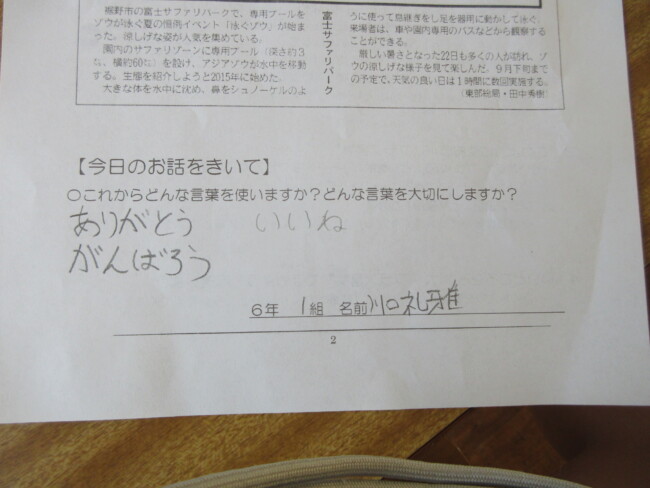 裾野市の富士サファリパークで、専用プールを
ゾウが泳ぐ夏の恒例イベント「泳ぐゾウ」が始ま
った。涼しげな姿が人気を集めている。
園内のサファリゾーンに専用プール（深さ約3
㍍、横約60㍍）を設け、アジアゾウが水中を移動
する。生態を紹介しようと2015年に始めた。
大きな体を水中に沈め、鼻をシュノーケルのよ
富士サファリパーク
うに使って息継ぎをし足を器用に動かして泳ぐ。
来場者は、車や園内専用のバスなどから観察する
ことができる。
厳しい暑さとなった22日も多くの人が訪れ、ゾ
ウの涼しげな様子を見て楽しんだ。9月下旬まで
の予定で、天気の良い日は1時間に数回実施する。
（東部総局・田中秀樹）
【今日のお話をきいて】
○これからどんな言葉を使いますか？どんな言葉を大切にしますか？
ありがとう いいね
がんばろう
6年 1組 名前 川口礼雅
2